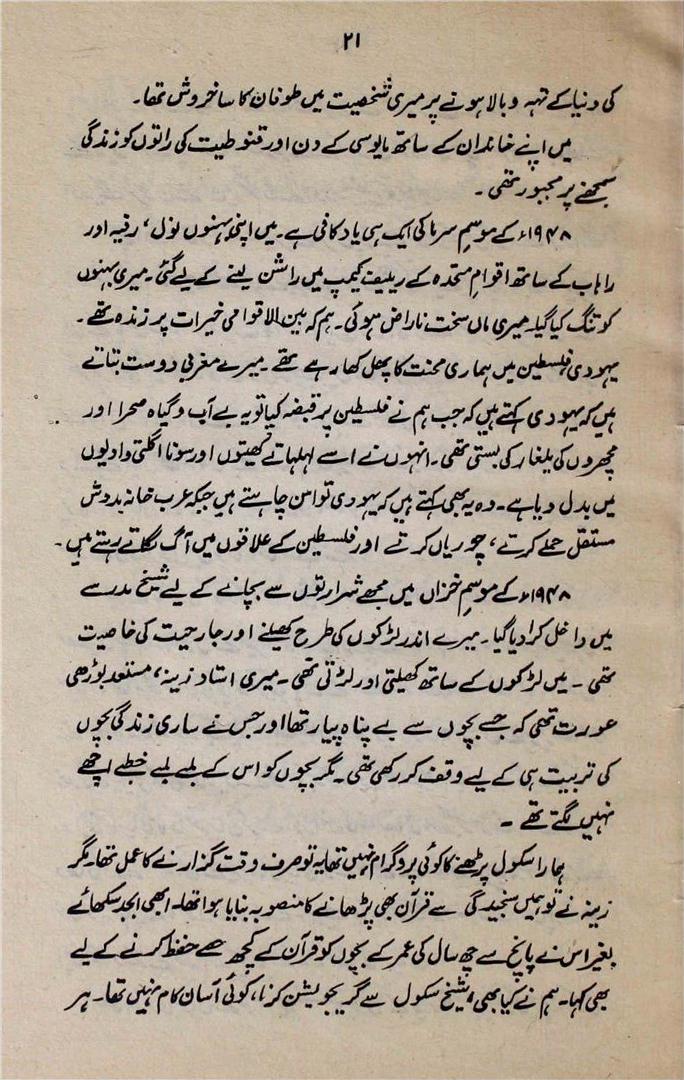 ۲۱
کی دنیا کے تہہ و بالا ہونے پر میری شخصیت میں طوفان کا سا خروش تھا۔
میں اپنے خاندان کے ساتھ مایوسی کے دن اور قنوطیت کی راتوں کو زندگی
سمجھنے پر مجبور تھی۔
۱۹۴۸ء کے موسمِ سرما کی ایک ہی یاد کافی ہے۔ میں اپنی بہنوں نوُل، رقیہ اور
راباب کے ساتھ اقوامِ متحدہ کے ریلیف کیمپ میں راشن لینے کے لیے گئی۔ میری بہنوں
کو تنگ کیا گیا۔ میری ماں سخت ناراض ہوئی۔ ہم کہ بین الاقوامی خیرات پر زندہ تھے۔
یہودی فلسطین میں ہماری محنت کا پھل کھا رہے تھے۔ میرے مغربی دوست بتاتے
ہیں کہ یہودی کہتے ہیں کہ جب ہم نے فلسطین پر قبضہ کیا تو یہ بے آب و گیاہ صحرا اور
مچھروں کی یلغار کی بستی تھی۔ انہوں نے اسے لہلہاتے کھیتوں اور سونا اگلتی وادیوں
میں بدل دیا ہے۔ وہ یہ بھی کہتے ہیں کہ یہودی تو امن چاہتے ہیں جبکہ عرب خانہ بدوش
مستقل حملے کرتے، چوریاں کرتے اور فلسطین کے علاقوں میں آگ لگاتے رہتے ہیں۔
۱۹۴۸ء کے موسمِ خزاں میں مجھے شرارتوں سے بچانے کے لیے شیخ مدرسے
میں داخل کرا دیا گیا۔ میرے اندر لڑکوں کی طرح کھیلنے اور جارحیت کی خاصیت
تھی۔ میں لڑکوں کے ساتھ کھیلتی اور لڑتی تھی۔ میری استاد زینہ، مستعد بوڑھی
عورت تھی کہ جسے بچوں سے بے پناہ پیار تھا اور جس نے ساری زندگی بچوں
کی تربیت ہی کے لیے وقف کر رکھی تھی۔ مگر بچوں کو اس کے لمبے لمبے خطبے اچھے
نہیں لگتے تھے۔
ہمارا سکول پڑھنے کا کوئی پروگرام نہیں تھا یہ تو صرف وقت گزارنے کا عمل تھا۔ مگر
زینہ نے تو ہمیں سنجیدگی سے قرآن بھی پڑھانے کا منصوبہ بنایا ہوا تھا۔ ابھی ابجد سکھائے
بغیر اس نے پانچ سے چھ سال کی عمر کے بچوں کو قرآن کے کچھ حصے حفظ کرنے کے لیے
بھی کہا۔ ہم نے کیا بھی، شیخ سکول سے گریجویشن کرنا، کوئی آسان کام نہیں تھا۔ ہر